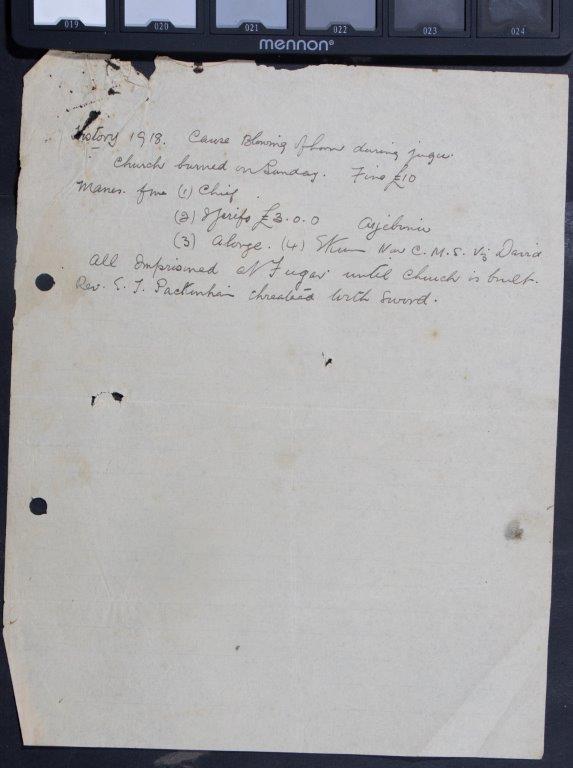 019 020 021 022 023 024
mennon®
History 1918. Cause Blowing of horn during
Church burned on Sunday. Fine £10
Names fine (1) Chief
(2) £3.0.0
(3) (4) Now C.M.S. Viz David
All Imprisoned at Fugar until Church is built.
Rev. E. T. Packenham threatened with Sword.